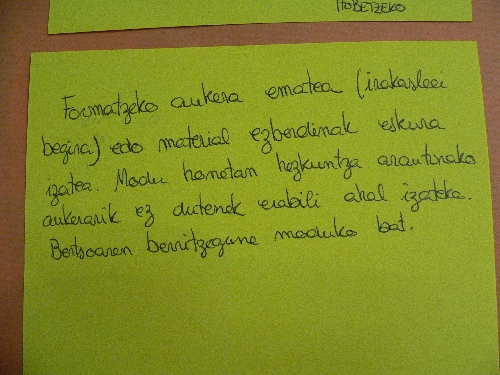 HOBETZEKO
Formatzeko aukera ematea (irakasleei
begira) edo material ezberdinak eskura
izatea. Modu honetan hezkuntza arautunako
aukerarik ez dutenek erabili ahal izateko.
Bertsoaren berritzegune moduko bat.